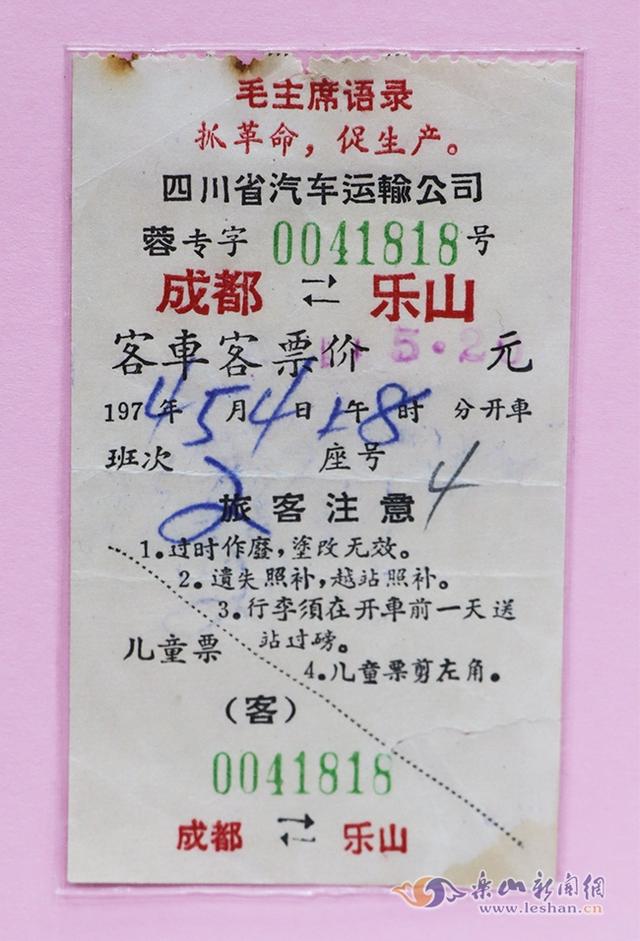 毛主席语录
抓革命，促生产。
四川省汽车运输公司
蓉专字 0041818号
成都 ⇄ 乐山
客車客票价 5.2 元
1974年5月4日上午8时 分开車
班次 2 座号 4
旅客注意
1.过时作废，塗改无效。
2.遺失照补，越站照补。
3.行李须在开車前一天送
站过磅。
儿童票
4.儿童票剪左角。
（客）
0041818
成都 ⇄ 乐山
乐山新闻网
www.leshan.cn